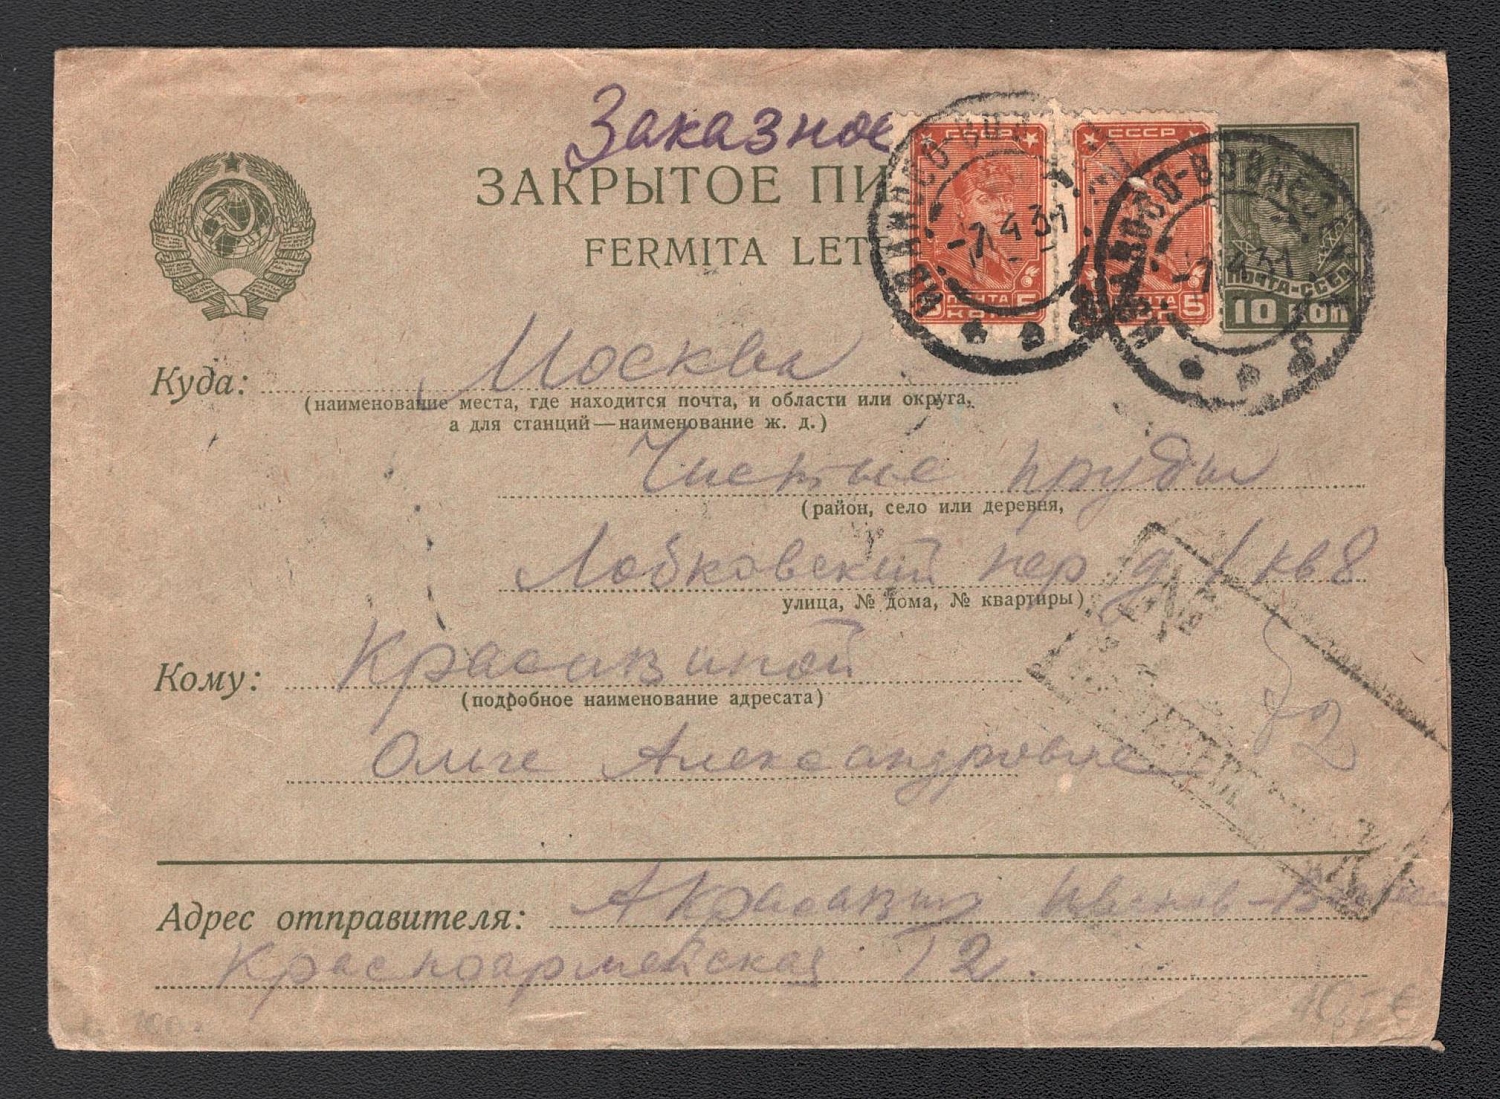 Заказное
ЗАКРЫТОЕ ПИ
FERMITA LET
СССР
ПОЧТА
5 КОП 5
СССР
ПОЧТА
5
ПОЧТА-СССР
10 КОП
ИВАНОВО-ВОЗ
-7.4.31
ИВАНОВО-ВОЗНЕСЕН
-7.4.31
Куда: Москва
(наименование места, где находится почта, и области или округа,
а для станций—наименование ж. д.)
Чистые пруды
(район, село или деревня,
Лобковский пер д 1 кв 8
улица, № дома, № квартиры)
Кому: Красавиной
(подробное наименование адресата)
Ольге Александровне
Адрес отправителя: А Красавин Иванов-Вознес
Красноармейская 12.